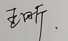 王昕.